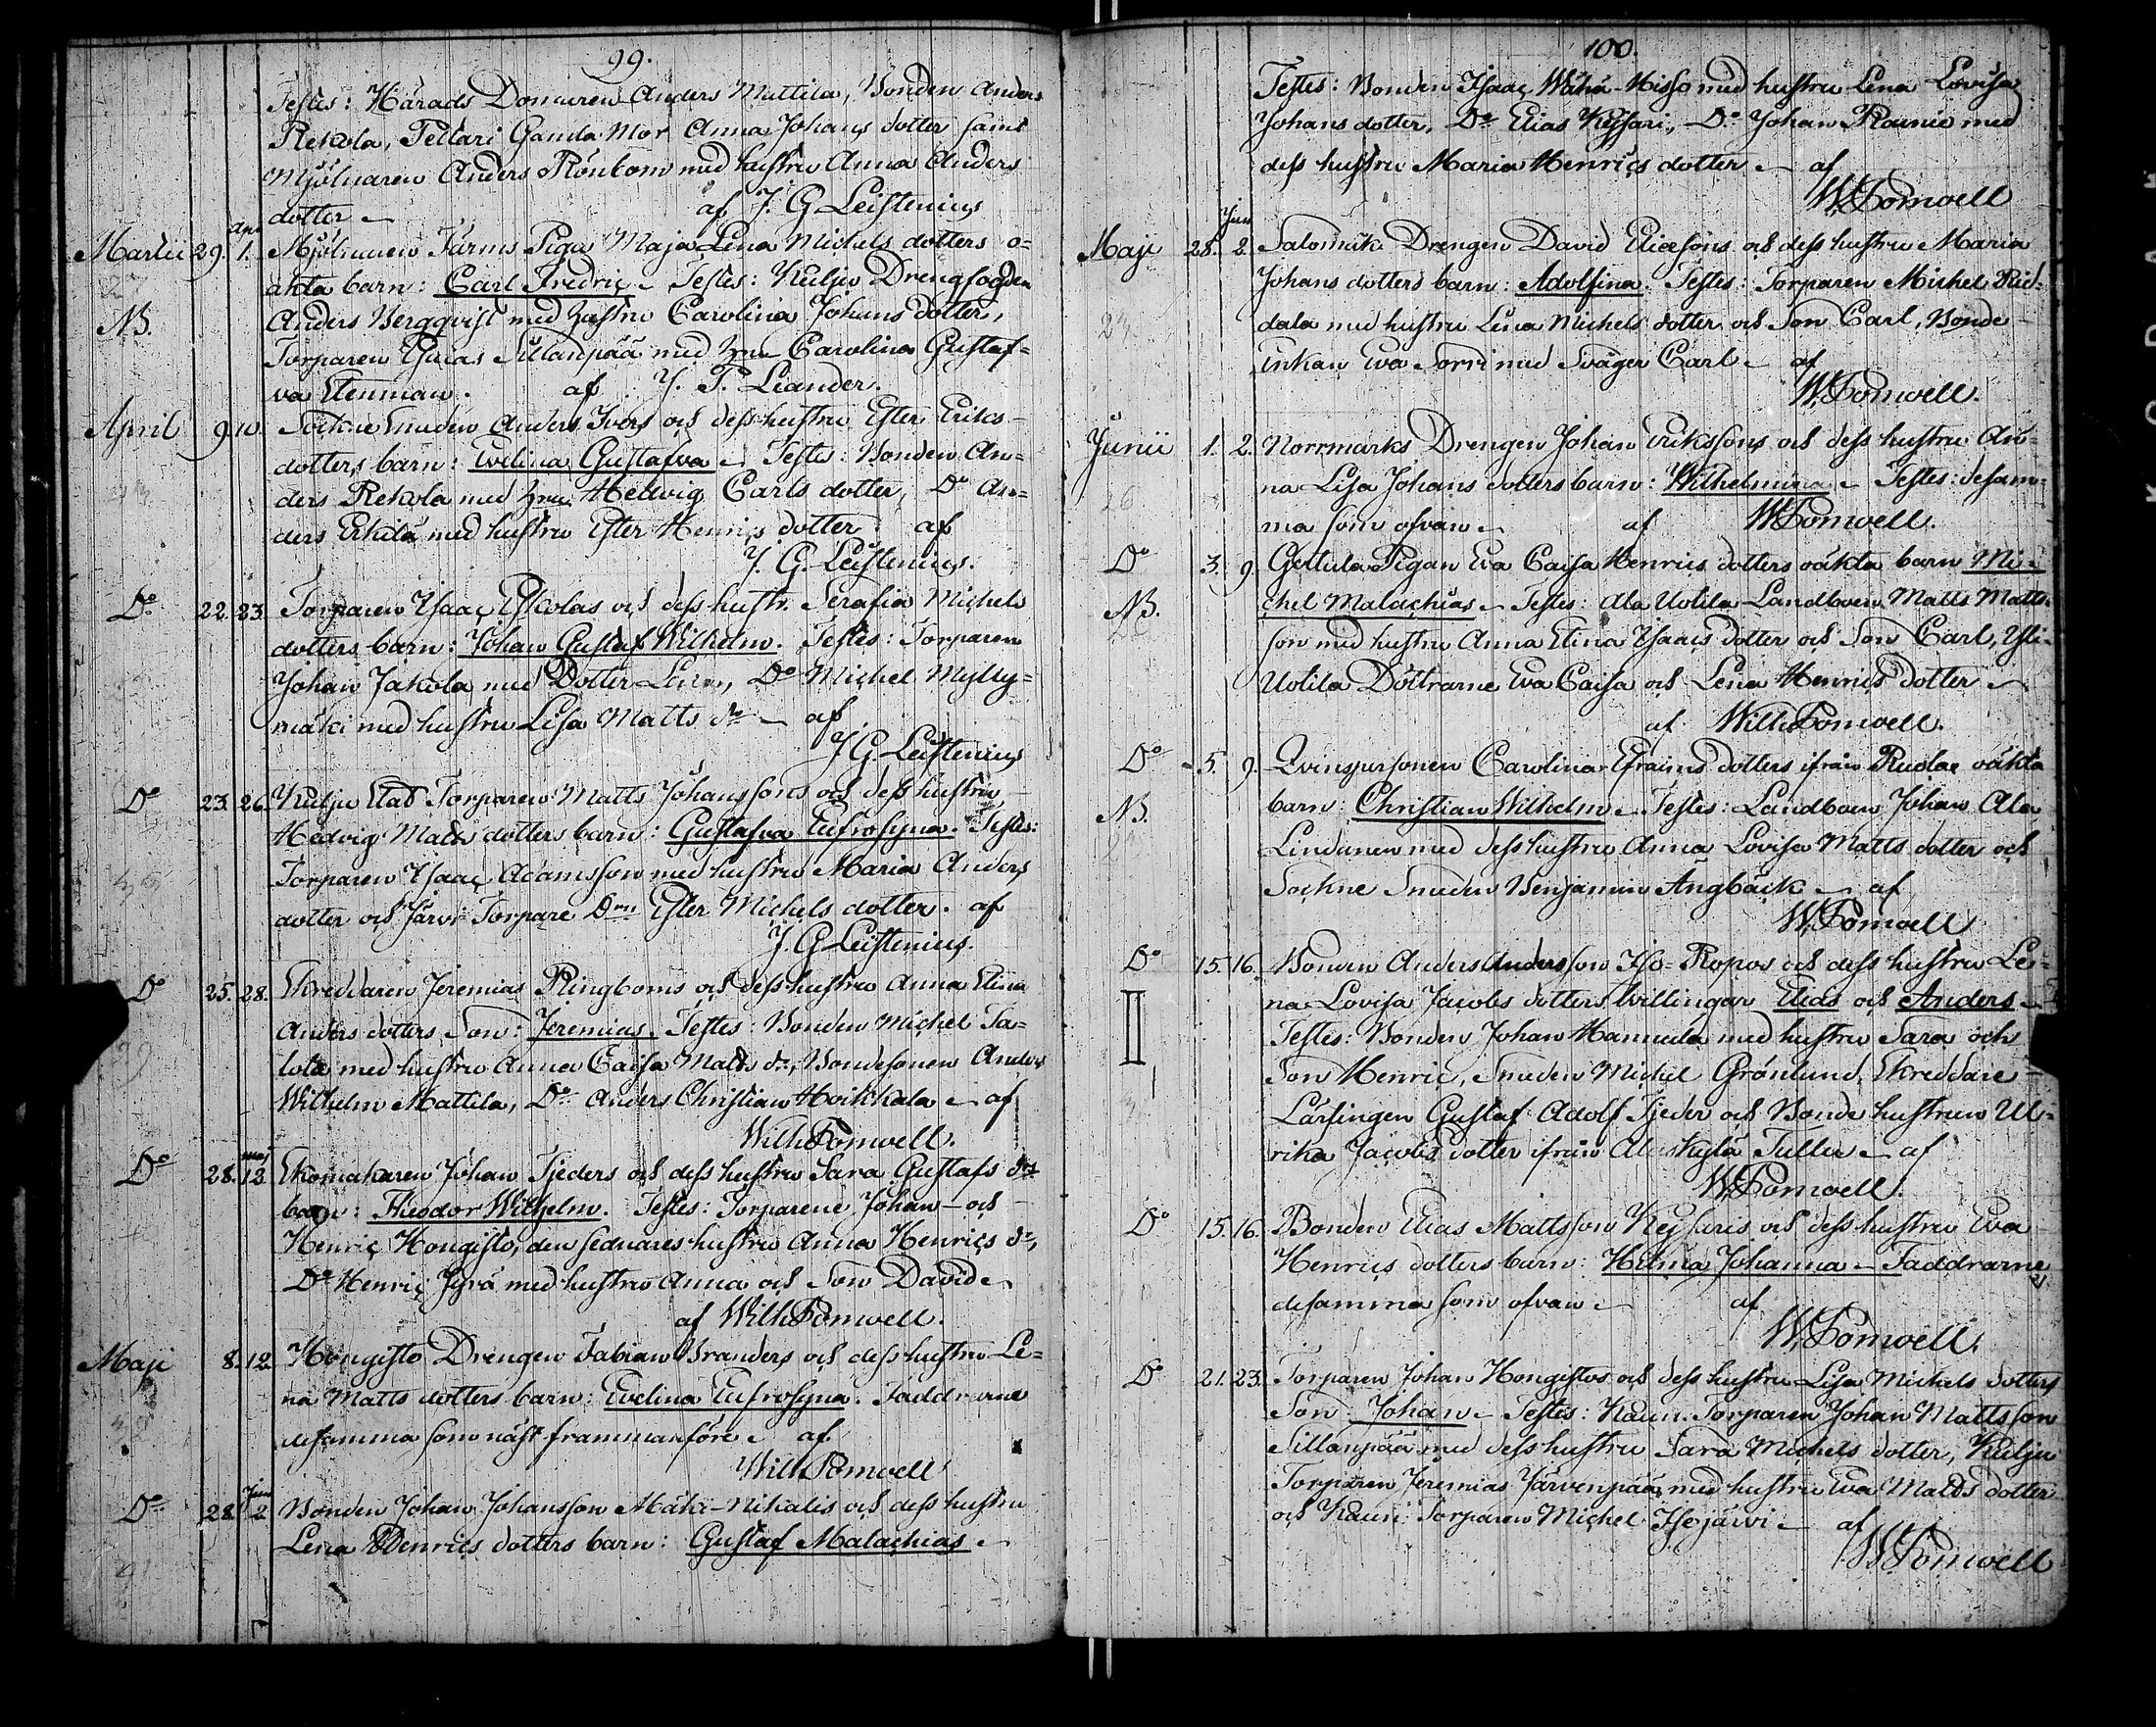 99.
Testes: Härads Domaren Anders Mattila, Bonden Anders
Rekola, Pellari Gamla Mor Anna Johans dotter samt
Mjölnaren Anders Rönbom med hustru Anna Anders
dotter – af J. G. Leistenius
Martii 29. Apr. 1. Mjölnaren Färms Piga Maja Lena Michels dotters o=
NB. äkta barn: Carl Fredric – Testes: Kulju Drengfogden
Anders Bergqvist med hustru Carolina Johans dotter,
Torparen Sillanpää med hru Carolina Gustaf=
va Stenman. af J. P. Leander.
April 9. 10. Smeden Anders Ivers och dess hustru Ester Eriks-
dotters barn: Evelina Gustafva – Testes: Bonden An=
ders Rekola med hru Hedvig Carls dotter, Do An=
ders Erkilä med hustru Ester Henrics dotter. af
J. G. Leistenius.
Do 22. 23. Torparen Isaac Eskolas och dess hustr. Serafia Michels
dotters barn: Johan Gustaf Wilhelm. Testes: Torparen
Johan Jakola med Dotter Lena, Do Michel Mylly=
mäki med hustru Lisa Matts dr – af
J. G. Leistenius
Do 23. 26. Kulju Stad Torparen Matts Johanssons och dess hustru
Hedvig Matts dotters barn: Gustafva Eufrosyna. Testes:
Torparen Isaac Adamsson med hustru Maria Anders
dotter och Järvi Torpare Ester Michels dotter. af
J. G. Leistenius.
Do 25. 28. Skreddaren Jeremias Ringboms och dess hustru Anna Stina
Anders dotters Son: Jeremias. Testes: Bonden Michel Ta=
lola med hustru Anna Caisa Matts dr, Bondesonen Anders
Wilhelm Mattila, Do Anders Christian Hoikkala – af
Wilh. Pomoell.
Do 28. maj 12 Skomakaren Johan Tjeders och dess hustru Sara Gustafs drs
barn: Theodor Wilhelm. Testes: Torparene Johan – och
Henric Hongisto, den sednares hustru Anna Henrics dr,
Do Henric Jyrä med hustru Anna och Son David –
af Wilh. Pomoell.
Maji 8. 12. Hongisto Drengen Fabian Branders och dess hustru Le=
na Matts dotters barn: Evelina Eufrosyna. Faddrarne
desamma som näst frammanföre – af
Wilh. Pomoell
Do 28. Juni 2 Bonden Johan Johansson Mäki-Nikalis och dess hustru
Lena Henrics dotters barn: Gustaf Malachias –
100.
Testes: Bonden Isaac Wähä-Hisso med hustru Lena Lovisa
Johans dotter, Do Elias Keysari, Do Johan Raunio med
dess hustru Maria Henrics dotter – af
W. Pomoell
Maji 28. Jun. 2. Salomäki Drengen David Eliæsons och dess hustru Maria
Johans dotters barn: Adolfina. Testes: Torparen Michel
med hustru Lena Michels dotter och Son Carl, Bonde-
Enkan Eva Sorri med Svåger Carl – af
W. Pomoell.
Junii 1. 2. Norrmarks Drengen Johan Erikssons och dess hustru An=
na Lisa Johans dotters barn: Wilhelmina – Testes: desam=
ma som ofvan – af W. Pomoell.
Do 3. 9. Gellula Pigan Eva Caisa Henrics dotters oäkta barn Mi=
NB. chel Malachias – Testes: Ala Uotila Landboen Matts Matts=
son med hustru Anna Stina Isaacs dotter och Son Carl, Yli-
Uotila Döttrarne Eva Caisa och Lena Henrics dotter –
af Wilh. Pomoell.
Do 5. 9. Qvinspersonen Carolina Efraims dotters ifrån oäkta
NB. barn: Christian Wilhelm – Testes: Landboen Johan Ala
Lindanen med dess hustru Anna Lovisa Matts dotter och
Sockne Smeden Benjamin Ängbäck – af
W. Pomoell
Do 15. 16. Bonden Anders Andersson Iso-Ropos och dess hustru Le=
II na Lovisa Jacobs dotters tvillingar Elias och Anders –
Testes: Bonden Johan Hannula med hustru Sara och
Son Henric, Smeden Michel Grönlund, Skreddare
Lärlingen Gustaf Adolf Tjeder och Bonde hustrun Ul=
rika Jacobs dotter ifrån Tullu – af
W. Pomoell.
Do 15. 16. Bonden Elias Mattsson Keysaris och dess hustru Eva
Henrics dotters barn: Helma Johanna – Faddrarne
desamma som ofvan – af
W. Pomoell.
Do 21. 23. Torparen Johan Hongistos och dess hustru Lisa Michels dotters
Son: Johan – Testes: Torparen Johan Mattsson
Sillanpää med dess hustru Sara Michels dotter, Kulju
Torparen Jeremias Järvenpää med hustru Eva Matts dotter
och Torparen Michel Isojärvi – af
W. Pomoell